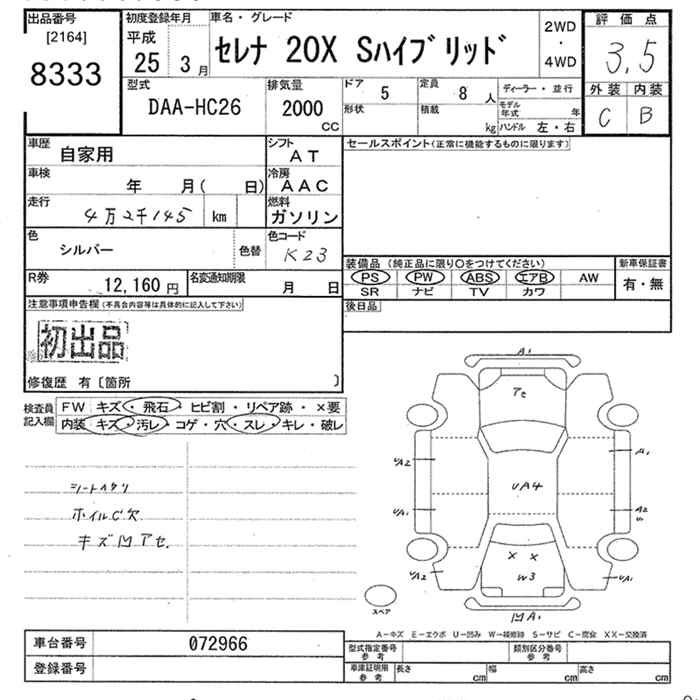 出品番号
[2164]
8333
初度登録年月
平成
25 3月
車名・グレード
セレナ 20X Sハイブリッド
2WD
・
4WD
評価点
3.5
外装 内装
C B
型式
DAA-HC26
排気量
2000
CC
ドア 5
定員 8 人
ディーラー・並行
形状
積載 kg
モデル年式 年
ハンドル 左・右
車歴 自家用
シフト AT
セールスポイント(正常に機能するものに限ります)
車検 年 月( 日)
冷房 AAC
走行 4万2千145 km
燃料 ガソリン
色 シルバー 色替
色コード K23
装備品 (純正品に限り○をつけてください)
新車保証書
PS PW ABS エアB AW
有・無
SR ナビ TV カワ
R券 12,160円
名変通知期限 月 日
後日品
注意事項申告欄(不具合内容等は具体的に記入して下さい)
初出品
修復歴 有〔箇所 〕
検査員記入欄
FW キズ・飛石・ヒビ割・リペア跡・×要
内装 キズ・汚レ・コゲ・穴・スレ・キレ・破レ
シートヘタリ
ホイルC欠
キズ凹アセ
A1
アセ
UA2
A1
UA4
UA1
A2
UA2
× ×
W3
UA1
スペア
凹A1
A-キズ E-エクボ U-凹み W-補修跡 S-サビ C-腐食 XX-交換済
車台番号 072966
型式指定番号 参考
類別区分番号 参考
登録番号
車庫証明用 参考
長さ cm 幅 cm 高さ cm